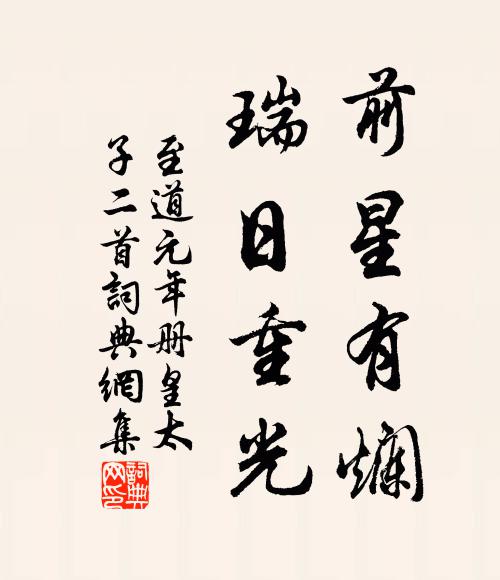 前星有爛
瑞日重光
至道元年册皇太
子二首詞典網集
詞典網印